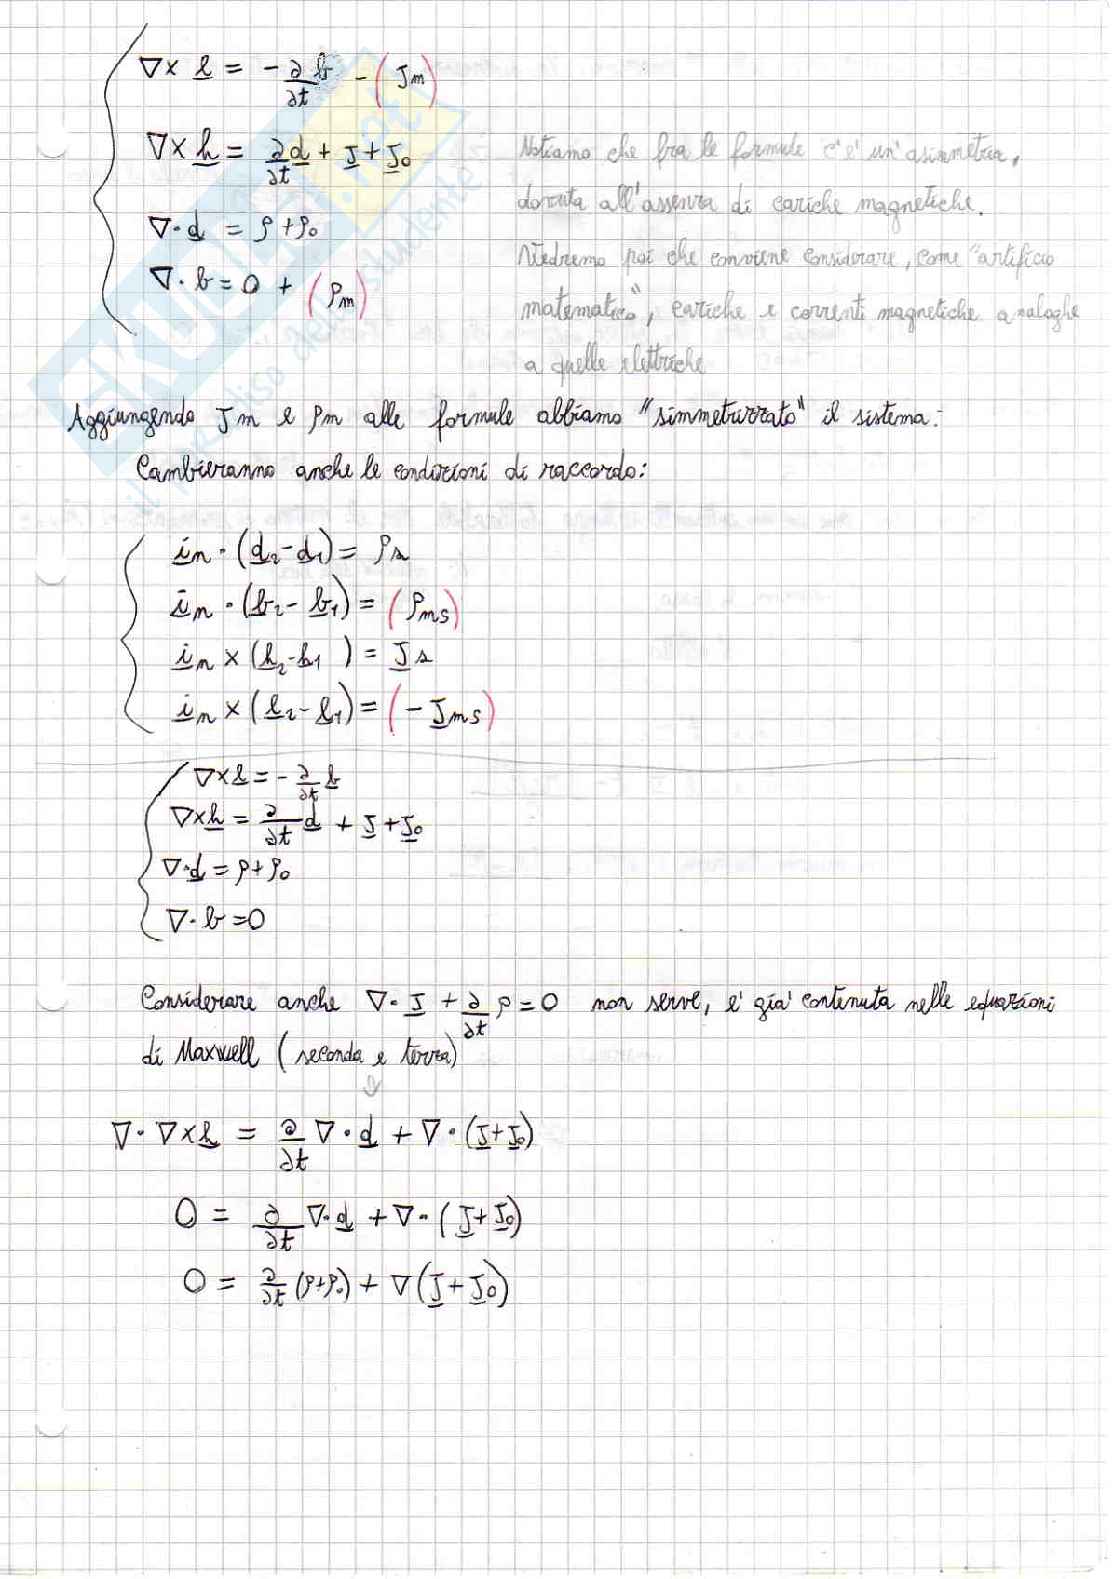 ∇× e = - ∂b/∂t - (Jm)
∇× h = ∂d/∂t + J + J₀
∇· d = ρ + ρ₀
∇· b = 0 + (ρm)
Notiamo che fra le formule c'é un'asimmetria,
dovuta all'assenza di cariche magnetiche.
Vedremo poi che conviene considerare, come "artificio
matematico", cariche e correnti magnetiche analoghe
a quelle elettriche
Aggiungendo Jm e ρm alle formule abbiamo "simmetrizzato" il sistema.
Cambieranno anche le condizioni di raccordo:
in · (d₂ - d₁) = ρs
in · (b₂ - b₁) = (ρms)
in × (h₂ - h₁ ) = Js
in × (e₂ - e₁) = (- Jms)
∇× e = - ∂/∂t b
∇× h = ∂/∂t d + J + J₀
∇· d = ρ + ρ₀
∇· b = 0
Considerare anche ∇· J + ∂/∂t ρ = 0 non serve, e' gia' contenuta nelle equazioni
di Maxwell (seconda e terza)
⇓
∇· ∇× h = ∂/∂t ∇· d + ∇· (J + J₀)
0 = ∂/∂t ∇· d + ∇· (J + J₀)
0 = ∂/∂t (ρ + ρ₀) + ∇ (J + J₀)
SKUOLA.net
il paradiso dello studente